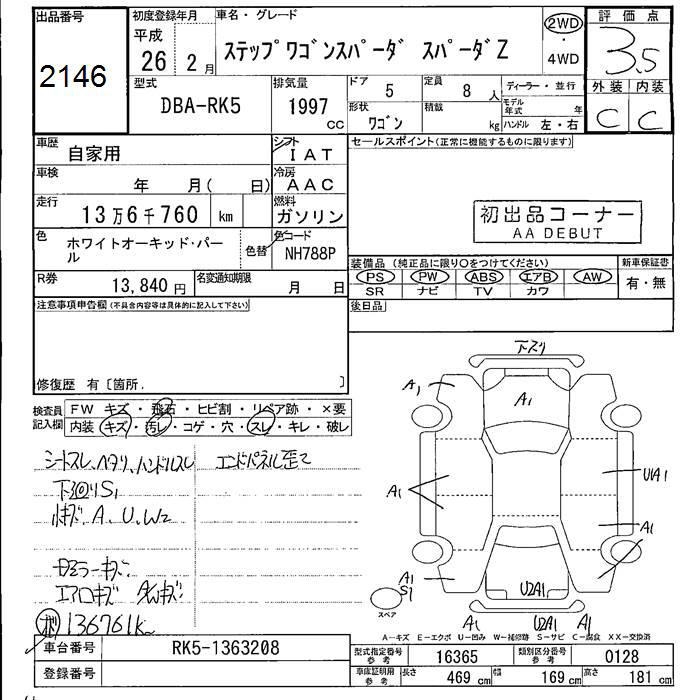 出品番号
2146
初度登録年月
平成
26 2 月
車名・グレード
ステップワゴンスパーダ スパーダZ
2WD
・
4WD
評価点
3.5
外装 内装
C C
型式
DBA-RK5
排気量
1997
cc
ドア
5
定員
8 人
形状
ワゴン
積載
kg
ディーラー・並行
モデル年式 年
ハンドル 左・右
車歴
自家用
シフト
IAT
車検
年 月( 日)
冷房
AAC
走行
13万6千760 km
燃料
ガソリン
色
ホワイトオーキッド・パール
色替
色コード
NH788P
R券
13,840 円
名変通知期限
月 日
セールスポイント(正常に機能するものに限ります)
初出品コーナー
AA DEBUT
装備品(純正品に限り○をつけてください)
PS PW ABS エアB AW
SR ナビ TV カワ
新車保証書
有・無
後日品
注意事項申告欄(不具合内容等は具体的に記入して下さい)
修復歴 有〔箇所. 〕
検査員記入欄
FW キズ・飛石・ヒビ割・リペア跡・×要
内装・キズ・汚レ・コゲ・穴・スレ・キレ・破レ
シートスレ、ヘタリ、ハンドルスレ
エンドパネル歪2
下廻りS1
A、U、W2
エアロキズ
136761K
下スリ
A1
A1
A1
U1A1
A1
A1
S1
U2A1
スペア
A1 U2A1 A1
A-キズ E-エクボ U-凹み W-補修跡 S-サビ C-腐食 XX-交換済
車台番号
RK5-1363208
登録番号
型式指定番号
参考
16365
類別区分番号
参考
0128
車庫証明用
参考
長さ 469 cm
幅 169 cm
高さ 181 cm